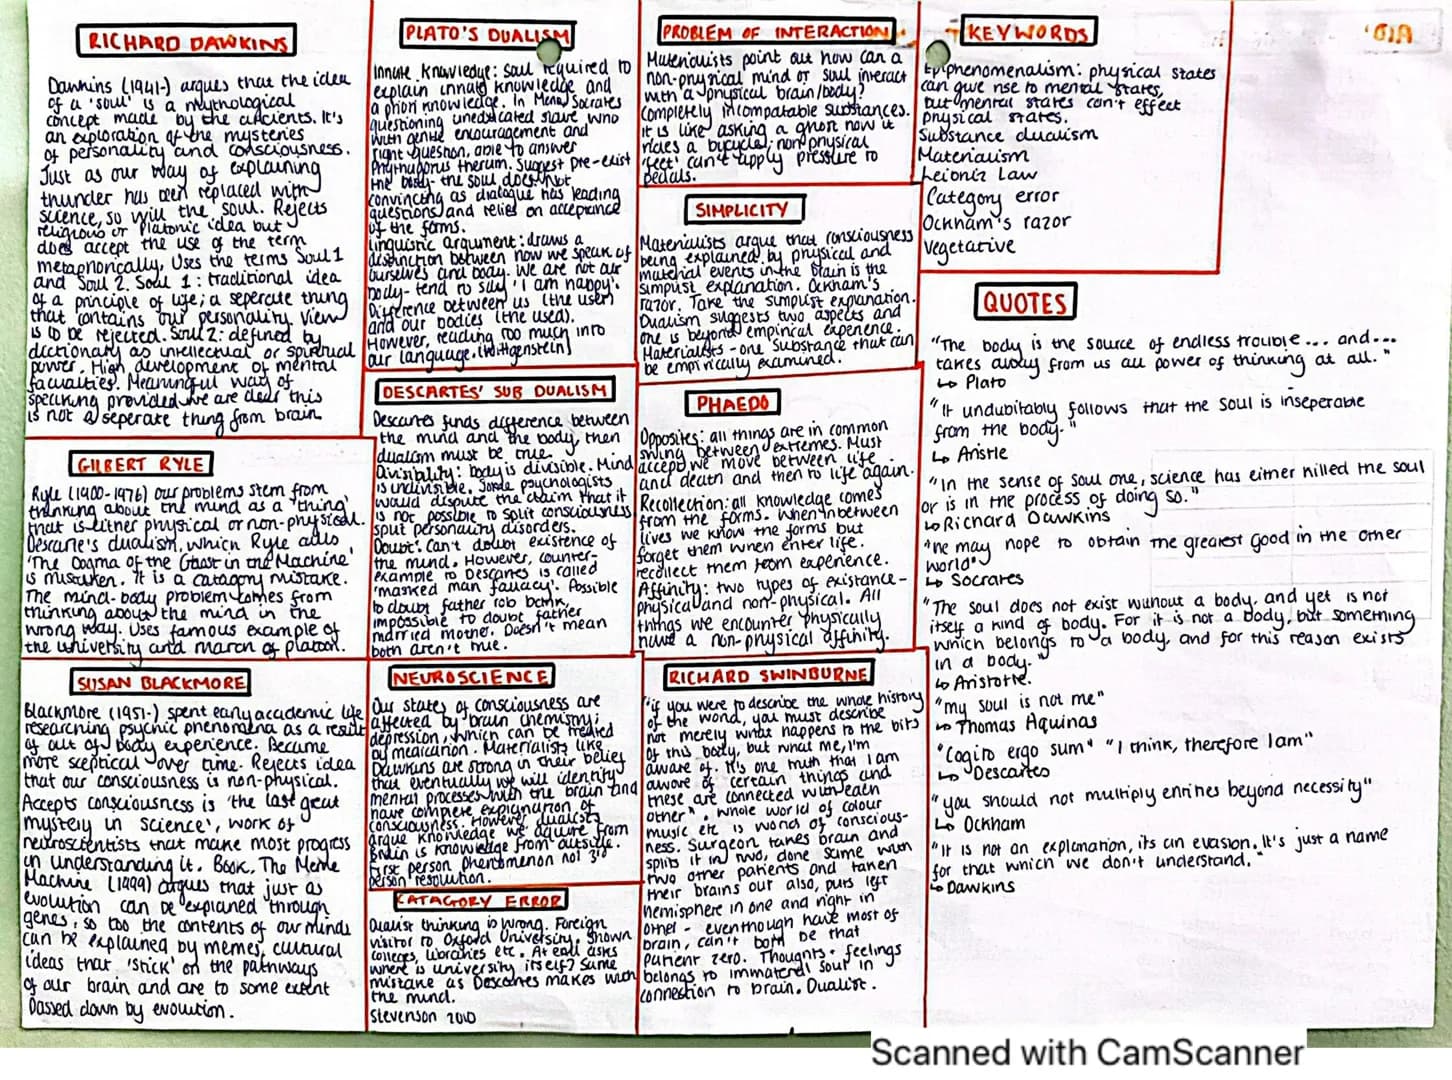 RICHARD DAWKINS
Dawkins (1941-) argues that the idea
of a 'soul' is a mythological
concept made by the ancients. It's
an exploration of the mysteries
of personality and consciousness.
Just as our way of explaining
thunder has been replaced with
science, so will the soul. Rejects
religious or Platonic idea but
does accept the use of the term
metaphorically. Uses the terms Soul 1
and Soul 2. Soul 1: traditional idea
of a principle of life; a seperate thing
that contains our personality. View
is to be rejected. Soul 2: defined by
dictionary as intellectual or spiritual
power. High development of mental
facualties. Meaningful way of
speaking provided we are clear this
is not a seperate thing from brain.
GILBERT RYLE
Ryle (1900-1976) our problems stem from
thinking about the mind as a 'thing'
that is either physical or non-physical.
Descarte's dualism, which Ryle calls
'The Dogma of the Ghost in the Machine'
is mistaken. It is a catagory mistake.
The mind-body problem comes from
thinking about the mind in the
wrong way. Uses famous example of
the university and march of platoon.
SUSAN BLACKMORE
Blackmore (1951-) spent early academic life
researching psychic phenomena as a result
of out of body experience. Became
more sceptical over time. Rejects idea
that our consciousness is non-physical.
Accepts consciousness is 'the last great
mystery in science', work of
neuroscientists that make most progress
in understanding it. Book, The Meme
Machine (1999) argues that just as
evolution can be explained through
genes, so too the contents of our minds
can be explained by memes, cultural
ideas that 'stick' on the pathways
of our brain and are to some extent
passed down by evolution.
PLATO'S DUALISM
Innate Knowledge: Soul required to
explain innate knowledge and
a priori knowledge. In Meno, Socrates
questioning uneducated slave who
with gentle encouragement and
right question, able to answer
Phythagorus therum. Suggest pre-exist
the body- the soul does. Not
convincing as dialogue has leading
questions and relies on acceptance
of the forms.
Linguistic argument: draws a
distinction between how we speak of
ourselves and body. We are not our
body- tend to say 'I am happy'.
Difference between us (the user)
and our bodies (the used).
However, reading too much into
our language. (Wittgenstein)
DESCARTES' SUB DUALISM
Descartes finds difference between
the mind and the body, then
dualism must be true.
Divisibility: body is divisible. Mind
is undivisible. Some psychologists
would dispute the claim that it
is not possible to split consciousness
split personality disorders.
Doubt: can't doubt existence of
the mind. However, counter-
example to Descartes is called
'masked man fallacy'. Possible
to doubt father rob bank,
impossible to doubt father
married mother. Doesn't mean
both aren't true.
NEUROSCIENCE
Our states of consciousness are
affected by brain chemistry;
depression, which can be treated
by medication. Materialists like
Dawkins are strong in their belief
that eventually we will identify
mental processes with the brain and
have complete explanation of
consciousness. However dualists
argue knowledge we aquire from
brain is knowledge from outside.
First person phenomenon not 3rd
person resolution.
CATAGORY ERROR
Dualist thinking is wrong. Foreign
visitor to Oxford University. Shown
colleges, libraries etc. At end asks
where is university itself? Same
mistake as Descartes makes with
the mind.
Stevenson 2010
PROBLEM OF INTERACTION
Materialists point out how can a
non-physical mind or soul interact
with a physical brain/body?
Completely incompatable substances.
it is like asking a ghost how it
rides a bicycle; non physical
'feet' can't apply pressure to
pedals.
SIMPLICITY
Materialists argue that consciousness
being explained by physical and
material events in the brain is the
simplist explanation. Ockham's
razor. Take the simplist explanation.
Dualism suggests two aspects and
one is beyond empirical experience.
Materialists - one substance that can
be empirically examined.
PHAEDO
Opposites: all things are in common
swing between extremes. Must
accept we move between life
and death and then to life again.
Recollection: all knowledge comes
from the forms. When in between
lives we know the forms but
forget them when enter life.
recollect them from experience.
Affinity: two types of existance -
physical and non-physical. All
things we encounter physically
have a non-physical affinity.
RICHARD SWINBURNE
"if you were to describe the whole history
of the world, you must describe
not merely what happens to the bits
of this body, but what me, I'm
aware of. It's one truth that I am
aware of certain things and
these are connected with each
other". Whole world of colour
music etc is world of conscious-
ness. Surgeon takes brain and
splits it in two, done same with
two other patients and taken
their brains out also, puts left
hemisphere in one and right in
other - eventhough have most of
brain, can't both be that
patient zero. Thoughts + feelings
belongs to immaterial soul in
connection to brain. Dualist.
KEYWORDS
Epiphenomenalism: physical states
can give rise to mental states,
but mental states can't effect
physical states.
Substance dualism
Materialism
Leibniz Law
Category error
Ockham's razor
Vegetative
QUOTES
"The body is the source of endless trouble... and...
takes away from us all power of thinking at all."
↳ Plato
"It undubitably follows that the soul is inseperable
from the body."
↳ Aristle
"In the sense of soul one, science has either killed the soul
or is in the process of doing so."
↳ Richard Dawkins
"he may hope to obtain the greatest good in the other
world"
↳ Socrates
"The soul does not exist without a body, and yet is not
itself a kind of body. For it is not a body, but something
which belongs to a body, and for this reason exists
in a body."
↳ Aristotle.
"my soul is not me"
↳ Thomas Aquinas
"Cogito ergo sum" "I think, therefore I am"
↳ Descartes
"you should not multiply entities beyond necessity"
↳ Ockham
"It is not an explanation, its an evasion. It's just a name
for that which we don't understand."
↳ Dawkins
Scanned with CamScanner